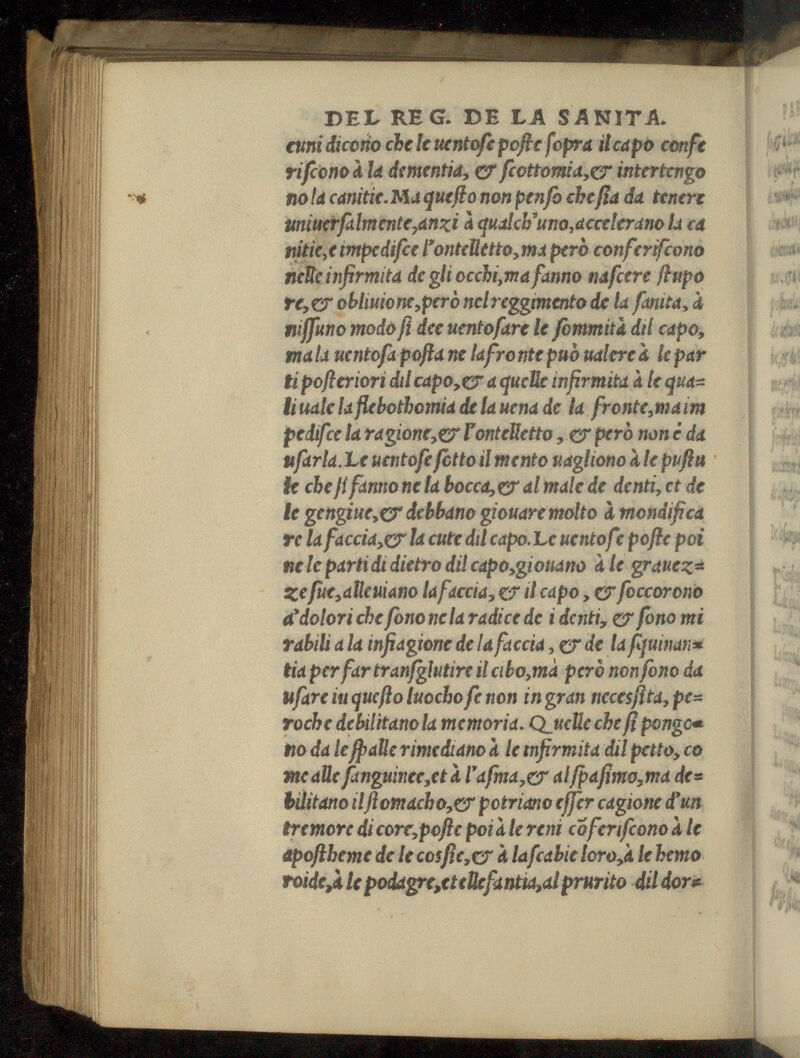 DEL REG. DE LA SANITA.
cuni dicono che le uentose poste sopra il capo confe
riscono à la dementia, & scottomia,& intertengo
no la canitie. Ma questo non penso che sia da tenere
uniuersalmente,anzi à qualch'uno,accelerano la ca
nitie,e impedisce l'ontelletto,ma però conferiscono
nelle infirmita de gli occhi,ma fanno nascere stupo
re,& obliuione,però nel reggimento de la sanita, à
nissuno modo si dee uentosare le sommità dil capo,
ma la uentosa posta ne la fronte può ualere à le par
ti posteriori dil capo,& a quelle infirmita à le qua=
li uale la flebothomia de la uena de la fronte,ma im
pedisce la ragione,& l'ontelletto, & però non é da
usarla. Le uentose sotto il mento uagliono à le pustu
le che si fanno ne la bocca,& al male de denti, et de
le gengiue,& debbano giouare molto à mondifica
re la faccia,& la cute dil capo. Le uentose poste poi
ne le parti di dietro dil capo,giouano à le grauez=
ze sue,alleuiano la faccia, & il capo, & soccorono
a'dolori che sono ne la radice de i denti, & sono mi
rabili a la infiagione de la faccia, & de la squinan=
tia per far transglutire il cibo,mà però non sono da
usare iu questo luocho se non in gran necessita, pe=
roche debilitano la memoria. Quelle che si pongo=
no da le spalle rimediano à le infirmita dil petto, co
me alle sanguinee,et à l'asma,& al spasimo,ma de=
bilitano il stomacho,& potriano esser cagione d'un
tremore di core,poste poi à le reni cõferiscono à le
apostheme de le cossie,& à la scabie loro,à le hemo
roide,à le podagre,et ellefantia,al prurito dil dor=